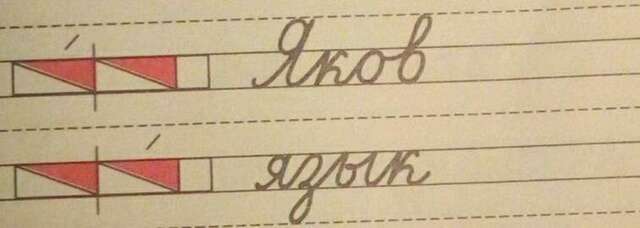 Яков
язык